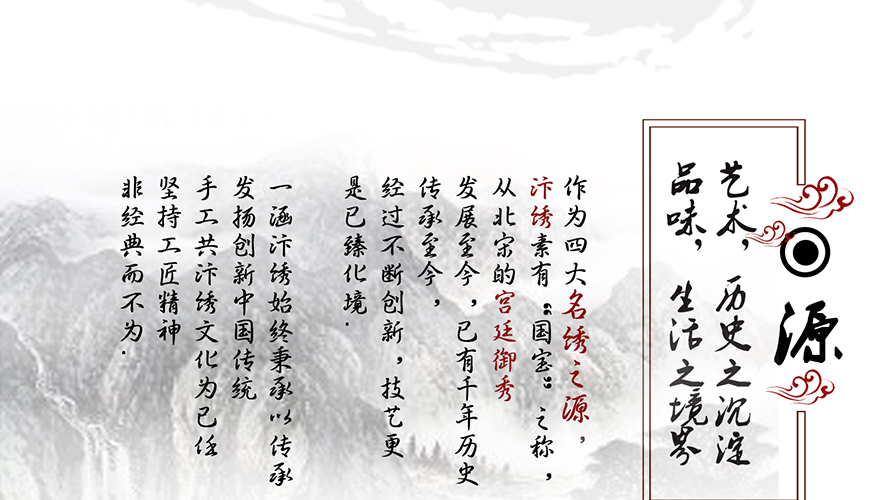 源
艺术，历史之沉淀
品味，生活之境界
作为四大名绣之源，
汴绣素有“国宝”之称，
从北宋的宫廷御秀
发展至今，已有千年历史
传承至今，
经过不断创新，技艺更
是已臻化境．
一涵汴绣始终秉承以传承
发扬创新中国传统
手工共汴绣文化为已任
坚持工匠精神
非经典而不为．